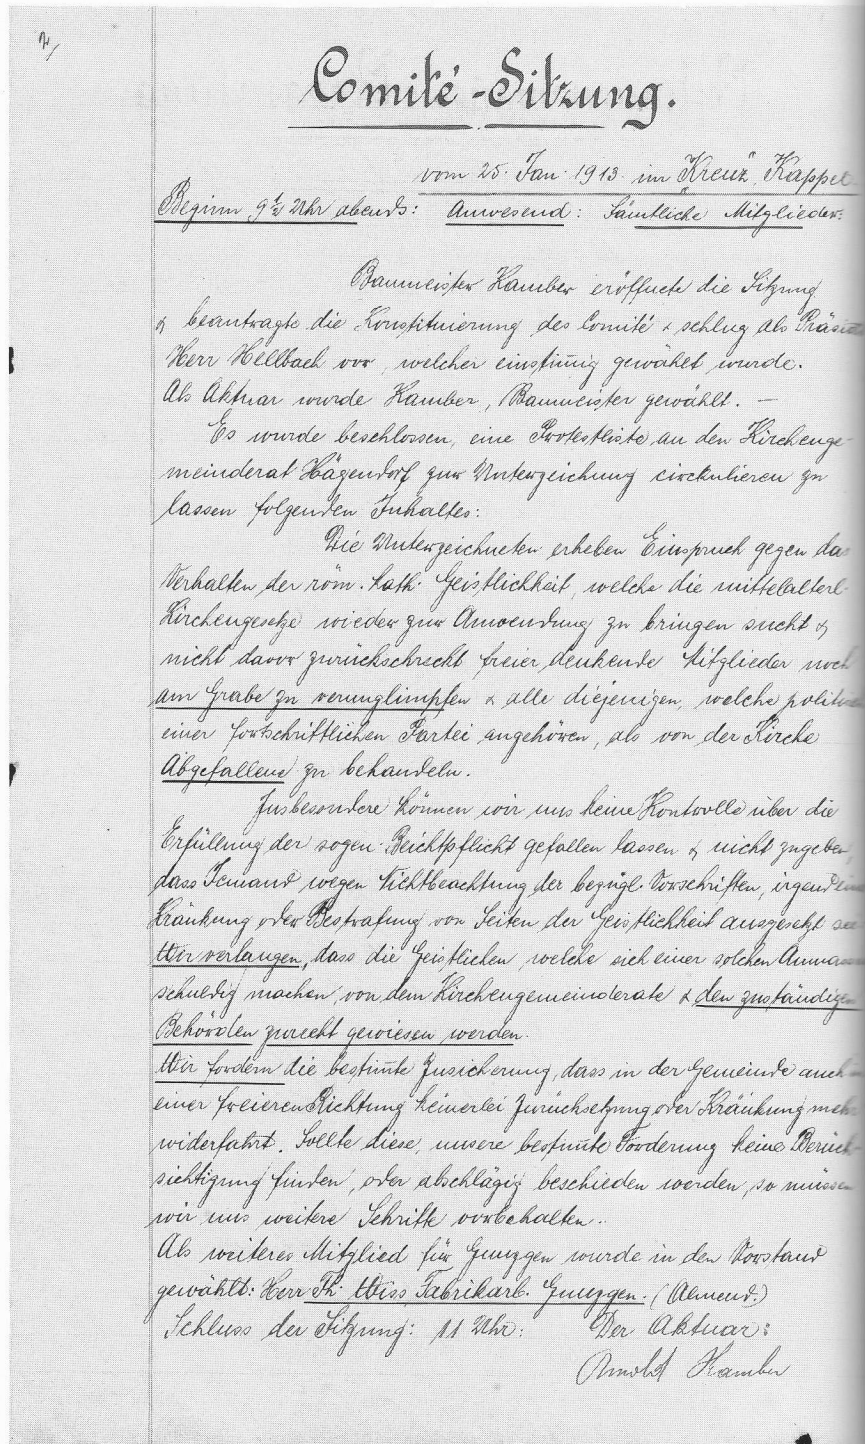 2/
Comité-Sitzung.
vom 25. Jan. 1913. im "Kreuz", Kappel
Beginn 9 1/2 Uhr abends: Anwesend: Sämtliche Mitglieder:
Baumeister Kamber eröffnete die Sitzung
& beantragte die Konstituierung des Comité & schlug als
Herr Hellbach vor, welcher einstim̄ig gewählt wurde.
Als Aktuar wurde Kamber, Baumeister gewählt. —
Es wurde beschlossen, eine Protestliste an den Kirchenge-
meinderat Hägendorf zur Unterzeichung circkulieren zu
lassen folgenden Inhaltes:
Die Unterzeichneten erheben Einspruch gegen da
Verhalten der röm. kath. Geistlichkeit, welche die mittelalterl.
Kirchengesetze wieder zur Anwendung zu bringen sucht &
nicht davor zurückschreckt freier denkende Mitglieder noch
am Grabe zu verunglimpfen & alle diejenigen, welche
einer fortschriftlichen Partei angehören, als von der Kirche
Abgefallene zu behandeln.
Insbesondere können wir uns keine Kontrolle über die
Erfüllung der sogen. Beichtpflicht gefallen lassen & nicht zugeben,
dass Jemand wegen Nichtbeachtung der bezügl. Vorschriften, irgend
Kränkung oder Bestrafung von Seiten der Geistlichkeit ausgesetzt
Wir verlangen, dass die Geistlichen welche sich einer solchen
schuldig machen, von dem Kirchengemeinderate & den zuständigen
Behörden zurecht gewiesen werden.
Wir fordern die bestim̄te Zusicherung, dass in der Gemeinde auch
einer freieren Richtung keinerlei Zurücksetzung oder Kränkung mehr
widerfahrt. Sollte diese, unsere bestim̄te Forderung keine Berück-
sichtigung finden, oder abschlägig beschieden werden, so müssen
wir uns weitere Schritte vorbehalten.
Als weiteres Mitglied für Gunzgen wurde in den Vorstand
gewählt: Herr Th. Wiss Fabrikarb. Gunzgen. (Almend.)
Schluss der Sitzung: 11 Uhr: Der Aktuar:
Arnold Kamber